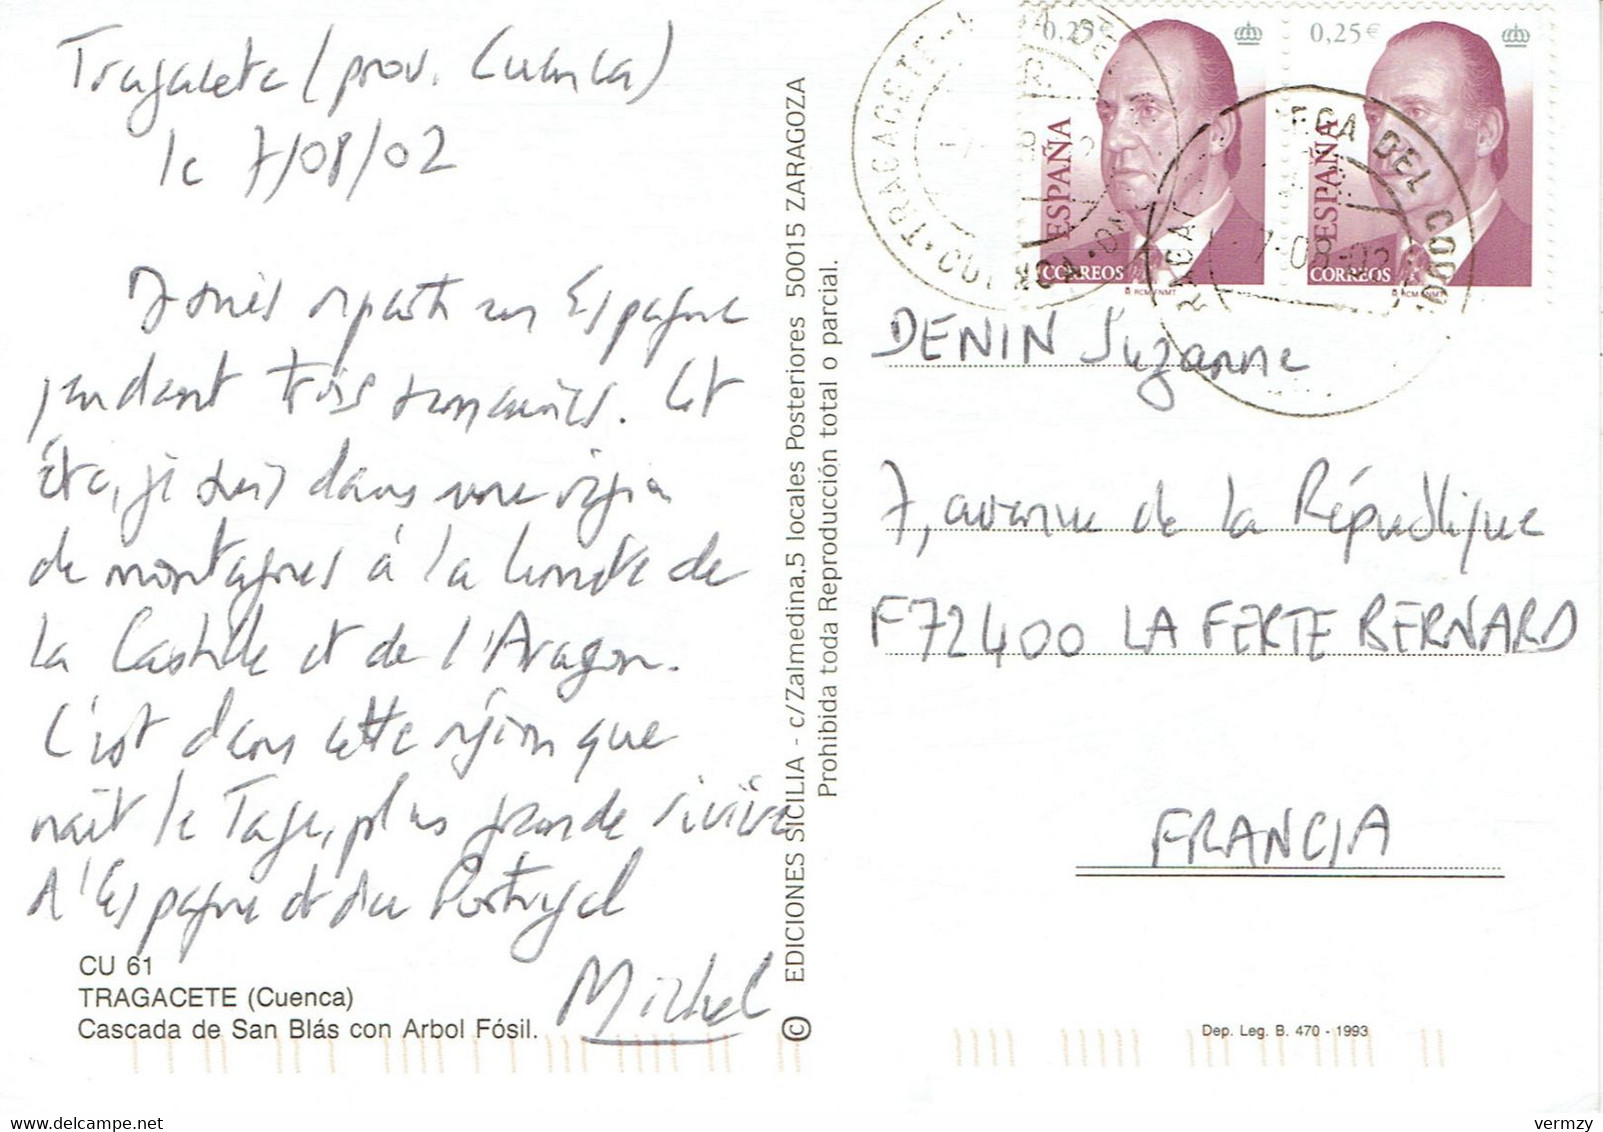 Tragacete (prov. Cuenca)
le 7/08/02
Je suis reparti en Espagne
pendant trois semaines. Cet
été, je suis dans une région
de montagnes à la limite de
la Castille et de l'Aragon.
C'est dans cette région que
naît le Tage, plus grande rivière
d'Espagne et du Portugal
Michel
CU 61
TRAGACETE (Cuenca)
Cascada de San Blás con Arbol Fósil.
© EDICIONES SICILIA - c/Zalmedina,5 locales Posteriores 50015 ZARAGOZA
Prohibida toda Reproducción total o parcial.
0,25€
0,25€
ESPAÑA
ESPAÑA
CORREOS
CORREOS
RCM-FNMT
RCM-FNMT
TRAGACETE
VEGA DEL CODO
7-08-02
DENIN Suzanne
7, avenue de la République
F72400 LA FERTE BERNARD
FRANCIA
Dep. Leg. B. 470 - 1993